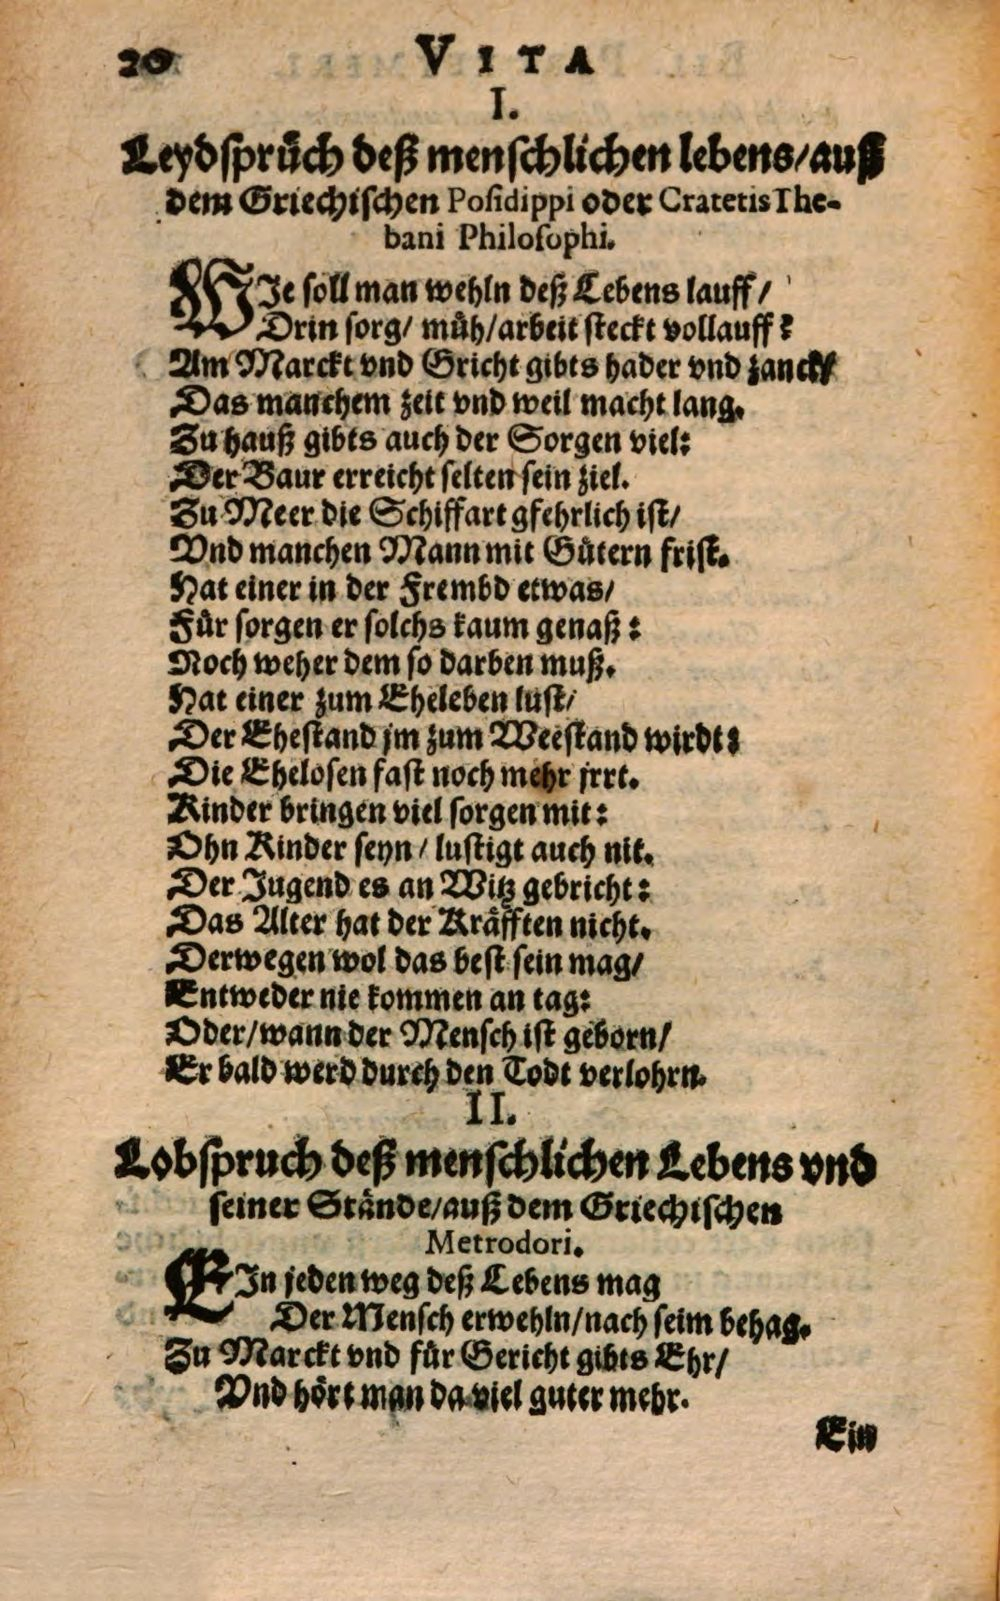 20 VITA
I.
Leydsprůch deß menschlichen lebens/auß
dem Griechischen Posidippi oder Cratetis The-
bani Philosophi.
WJe soll man wehln deß Lebens lauff/
Drin sorg/ můh/arbeit steckt vollauff?
Am Marckt vnd Gricht gibts hader vnd zanck/
Das manchem zeit vnd weil macht lang.
Zu hauß gibts auch der Sorgen viel:
Der Baur erreicht selten sein ziel.
Zu Meer die Schiffart gfehrlich ist/
Vnd manchen Mann mit Gůtern frist.
Hat einer in der Frembd etwas/
Fůr sorgen er solchs kaum genaß:
Noch weher dem so darben muß.
Hat einer zum Eheleben lust/
Der Ehestand jm zum Weestand wirdt:
Die Ehelosen fast noch mehr jrrt.
Kinder bringen viel sorgen mit:
Ohn Kinder seyn/ lustigt auch nit.
Der Jugend es an Witz gebricht:
Das Alter hat der Kråfften nicht.
Derwegen wol das best sein mag/
Entweder nie kommen an tag:
Oder/wann der Mensch ist geborn/
Er bald werd durch den Todt verlohrn.
II.
Lobspruch deß menschlichen Lebens vnd
seiner Stånde/auß dem Griechischen
Metrodori.
EJn jeden weg deß Lebens mag
Der Mensch erwehln/nach seim behag.
Zu Marckt vnd fůr Gericht gibts Ehr/
Vnd hört man da viel guter mehr.
Ein